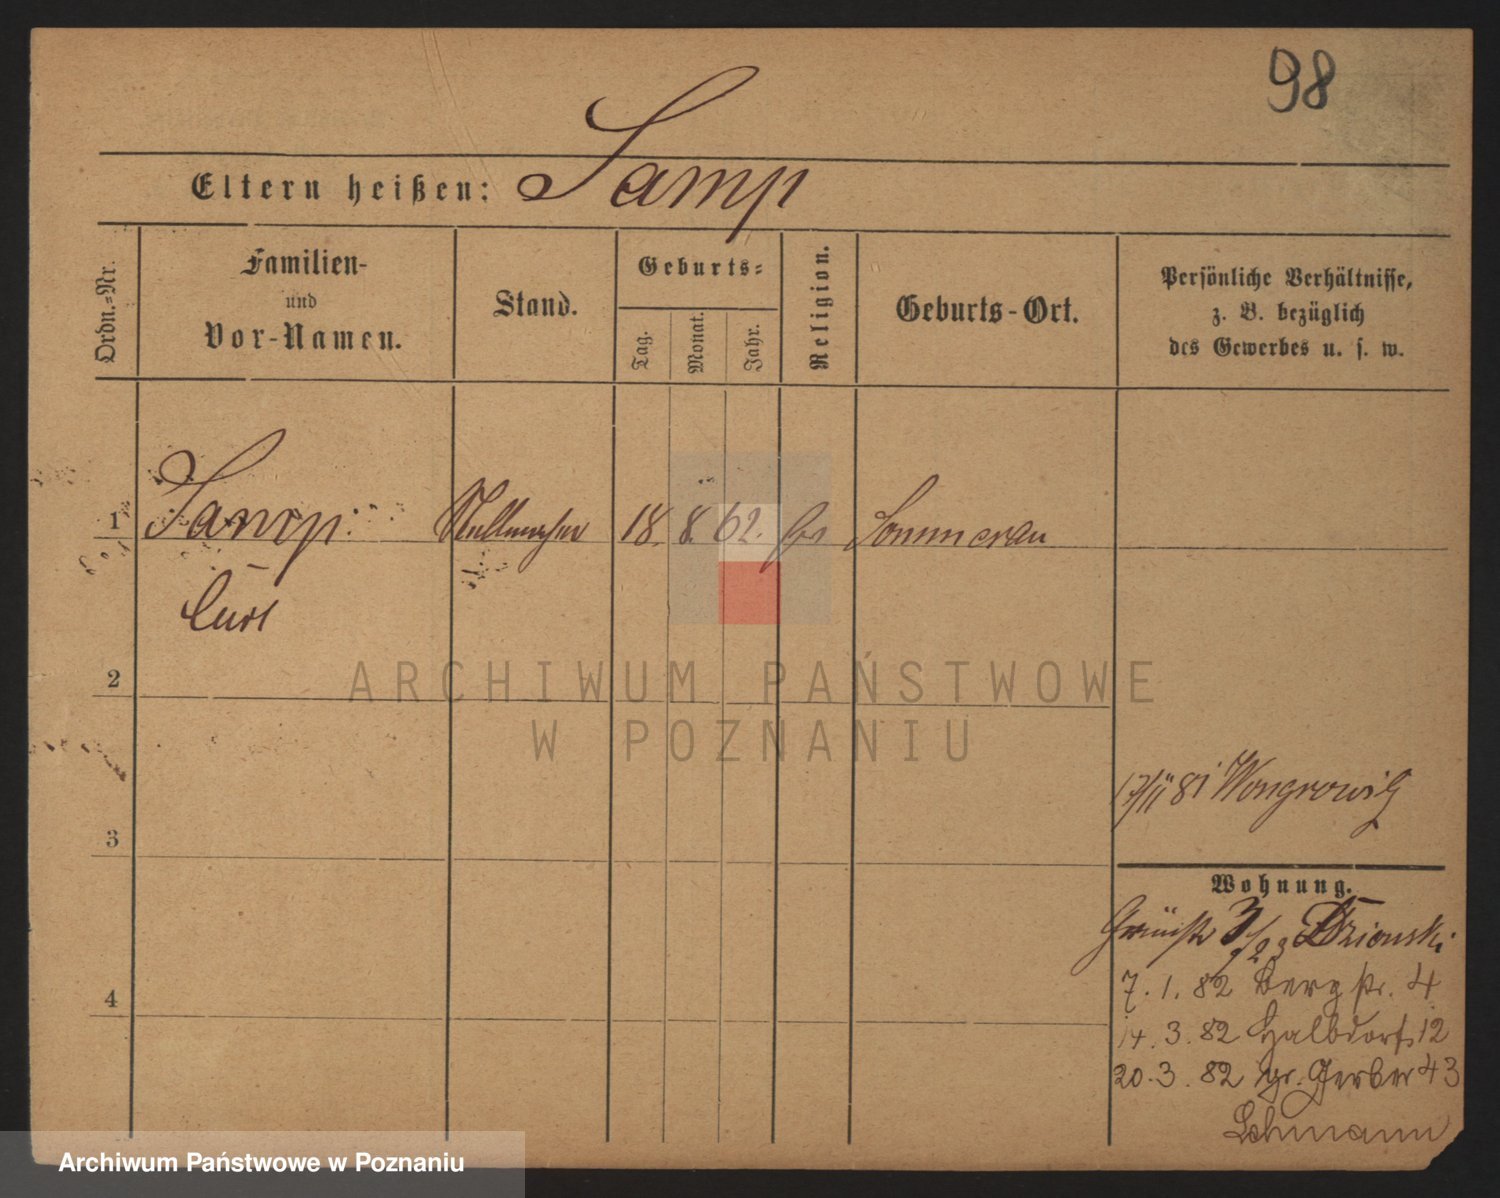 98
Eltern heißen: Samp
Ordn.=Nr.
Familien-
und
Vor-Namen.
Stand.
Geburts=
Tag.
Monat.
Jahr.
Religion.
Geburts-Ort.
Persönliche Verhältnisse,
z. B. bezüglich
des Gewerbes u. s. w.
1 Samp. 18. 8. 62. Sommerau
Curt
2
ARCHIWUM PAŃSTWOWE
W POZNANIU
17/11 81 Wongrowitz
3
Wohnung.
3/
7. 1. 82 Bergstr. 4
4
14. 3. 82 Halbdorfs 12
20. 3. 82 gr. Gerber 43
Lehmann
Archiwum Państwowe w Poznaniu